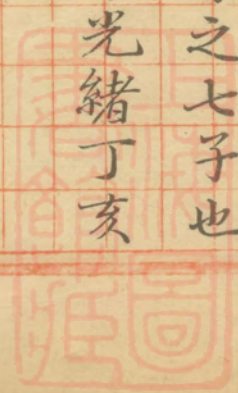 之七子也
光緒丁亥